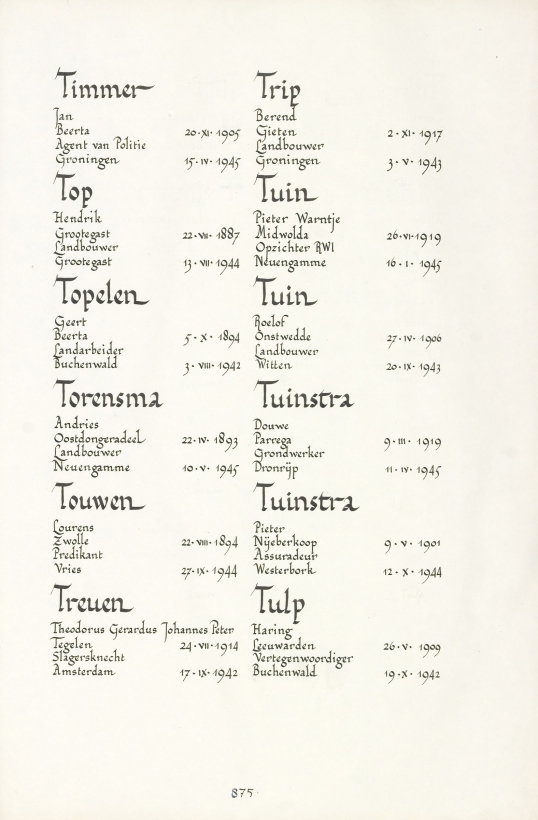 Timmer
Jan
Beerta 20·XI·1905
Agent van Politie
Groningen 15·IV·1945
Top
Hendrik
Grootegast 22·VII·1887
Landbouwer
Grootegast 13·VII·1944
Topelen
Geert
Beerta 5·X·1894
Landarbeider
Buchenwald 3·VIII·1942
Torensma
Andries
Oostdongeradeel 22·IV·1893
Landbouwer
Neuengamme 10·V·1945
Touwen
Lourens
Zwolle 22·VIII·1894
Predikant
Vries 27·IX·1944
Treuen
Theodorus Gerardus Johannes Peter
Tegelen 24·VII·1914
Slagersknecht
Amsterdam 17·IX·1942
Trip
Berend
Gieten 2·XI·1917
Landbouwer
Groningen 3·V·1943
Tuin
Pieter Warntje
Midwolda 26·VI·1919
Opzichter RWI
Neuengamme 16·I·1945
Tuin
Roelof
Onstwedde 27·IV·1906
Landbouwer
Witten 20·IX·1943
Tuinstra
Douwe
Parrega 9·III·1919
Grondwerker
Dronrijp 11·IV·1945
Tuinstra
Pieter
Nijeberkoop 9·V·1901
Assuradeur
Westerbork 12·X·1944
Tulp
Haring
Leeuwarden 26·V·1909
Vertegenwoordiger
Buchenwald 19·X·1942
875·